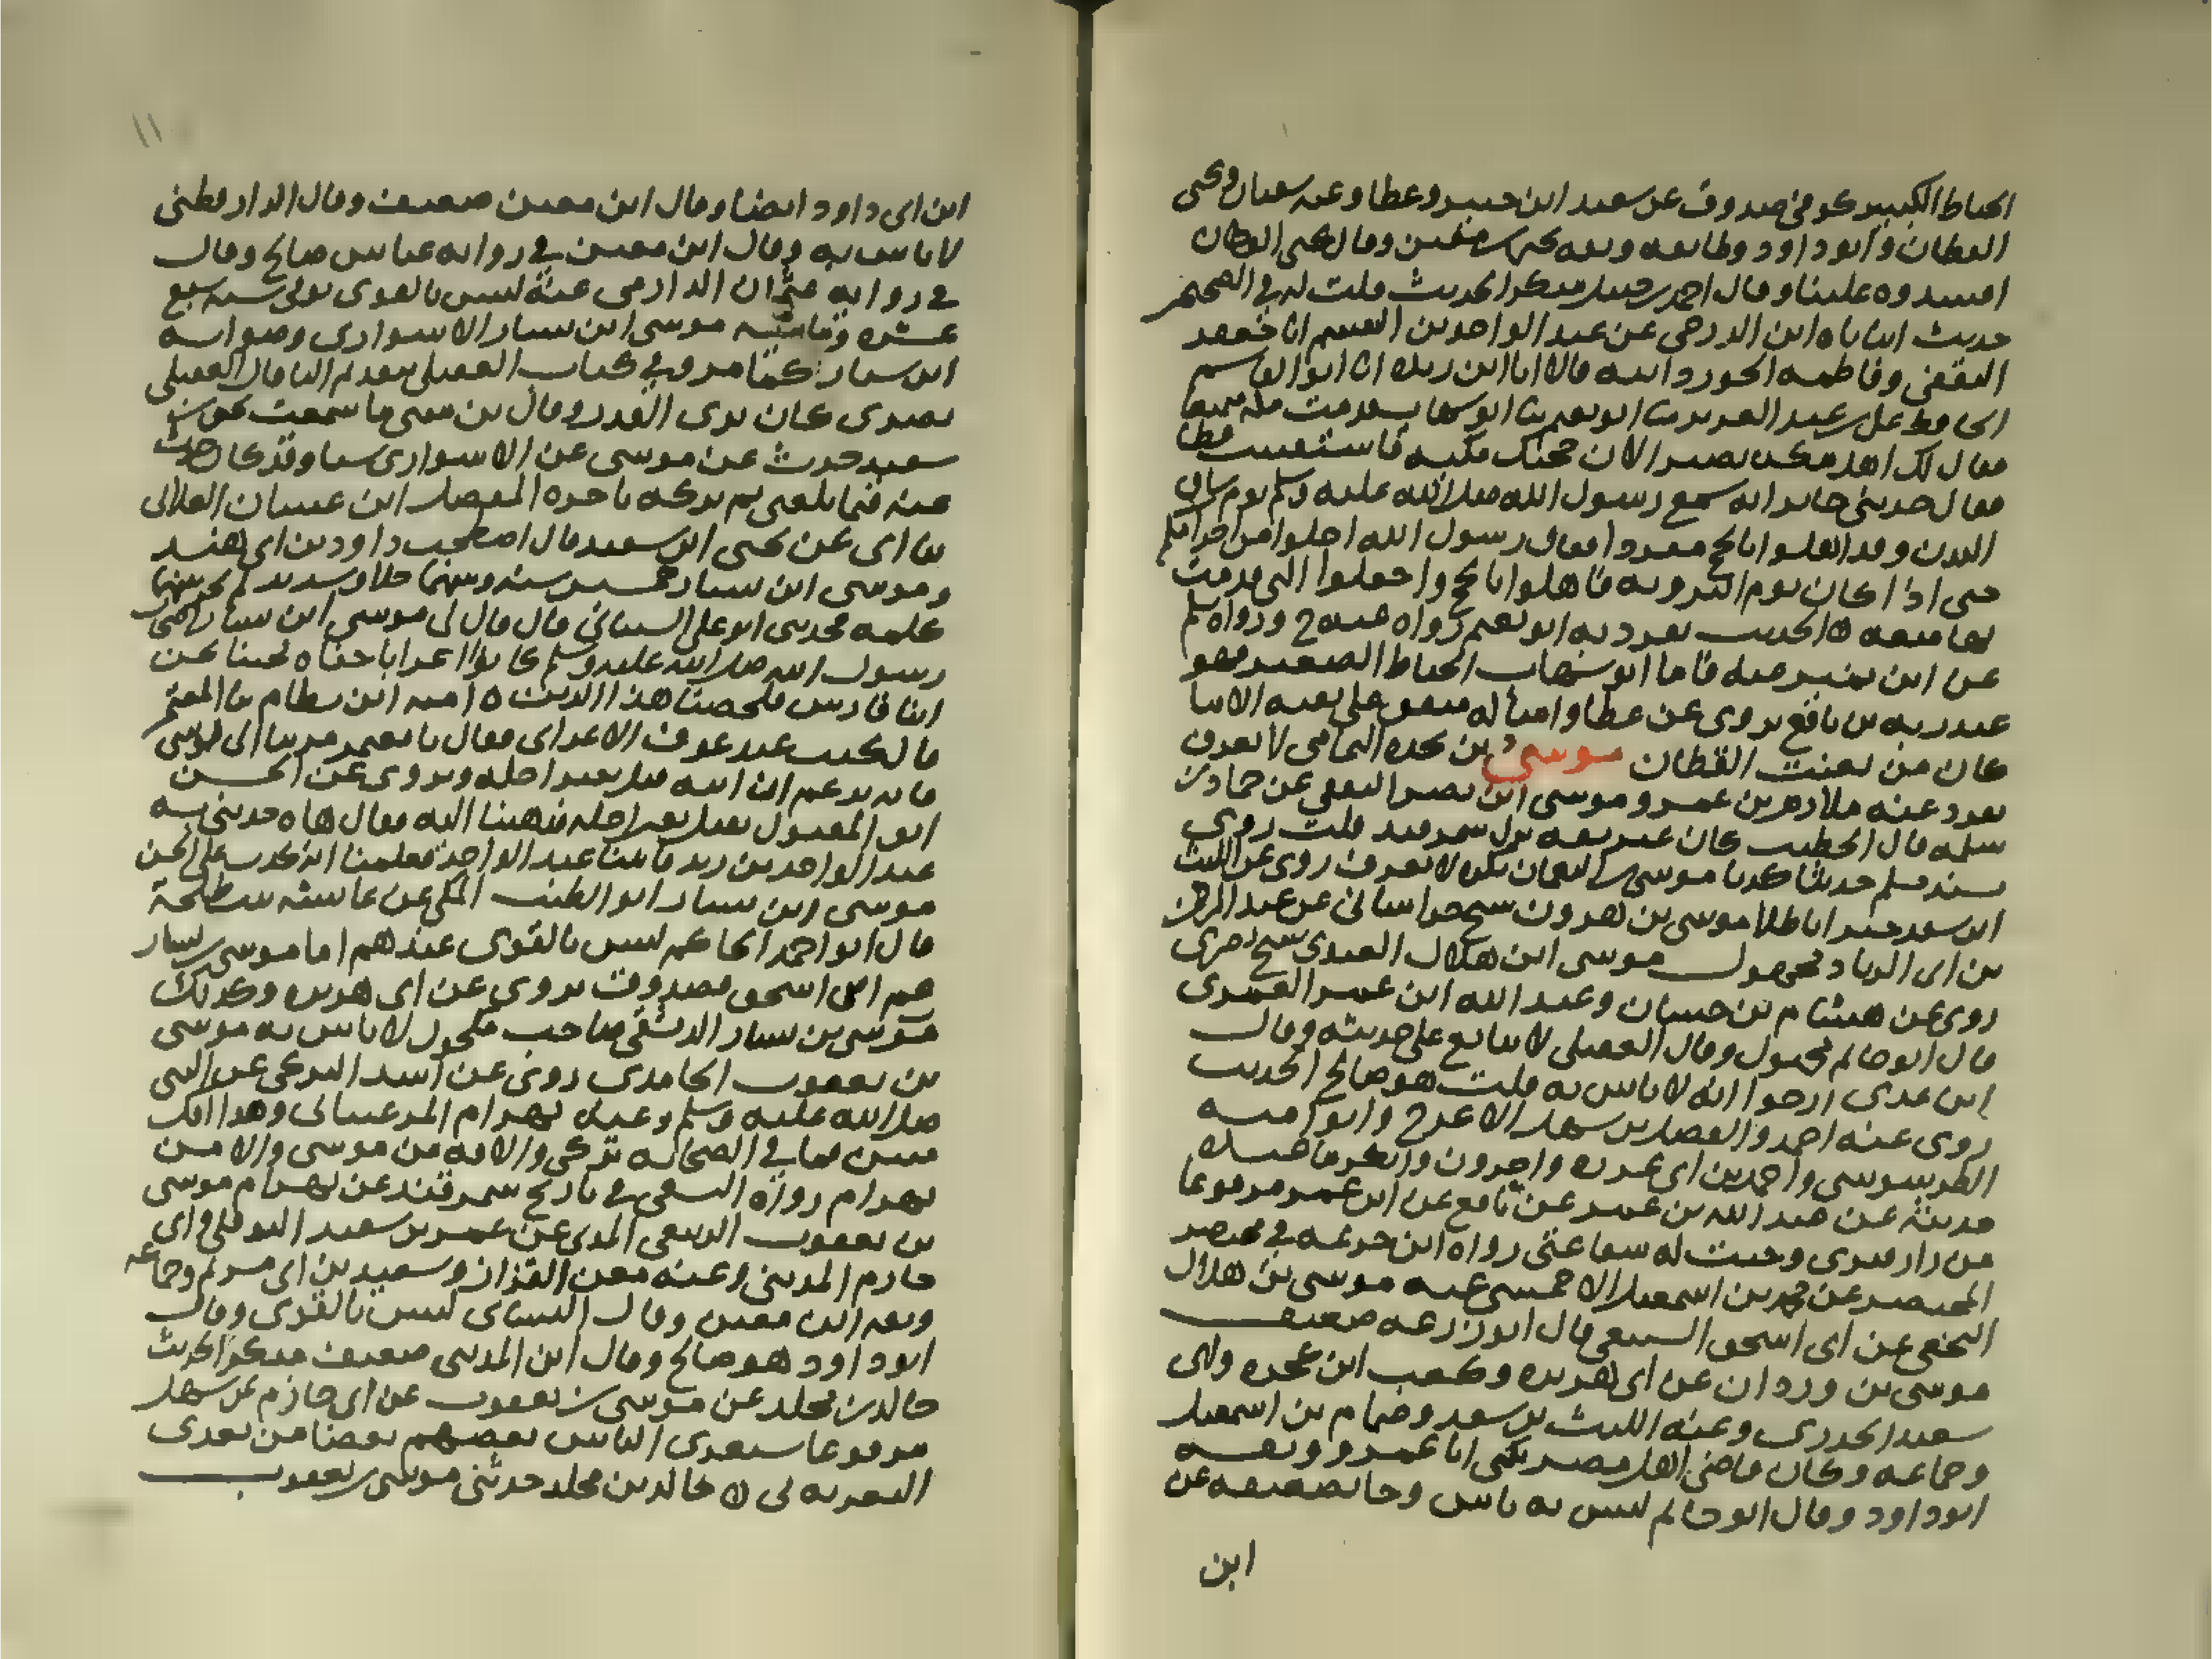 الحناط الكبير كوفي صدوق عن سعيد ابن جبير وعطا وعنه سفيان ويحيى
القطان وابو داود وطائفه وثقه يحيى بن معين وقال يحيى القطان
افسدوه علينا وقال احمد بن حنبل منكر الحديث قلت له في الصحيحين
حديث انباناه ابن الدرجي عن عبد الواحد بن القسم انا جعفر
الثقفي وفاطمه الجوزدانيه قالا انا ابن ريذه انا ابو القاسم
الحافظ علي بن عبد العزيز ثنا ابو نعيم ثنا ابو شهاب قدمت مكه متمتعا
فقال لك اهل مكه تصير الان حجتك مكيه فاستفتيت عطا
فقال حدثني جابر انه سمع رسول الله صلى الله عليه وسلم يوم ساق
البدن وقد اهلوا بالحج مفردا فقال رسول الله احلوا من احرامكم
حتى اذا كان يوم الترويه فاهلوا بالحج واجعلوا التي قدمت
بها متعه ه الحديث تفرد به ابو نعيم رواه عنه خ ورواه مسلم
عن ابن نمير عنه فاما ابو شهاب الحناط الصغير فهو
عبد ربه بن نافع يروي عن عطا وامثاله متفق على
كان من بعنت القطان موسى بن نجده اليمامي لا يعرف
تفرد عنه ملازم بن عمرو موسى ابن نصر الثقفي عن حماد بن
سلمه قال الخطيب كان غير ثقه نزل سمرقند قلت روى
بسند مسلم حديثا كذبا موسى بن النعمان نكره لا يعرف روى عن الليث
ابن سعد خبرا باطلا موسى بن هرون شيخ خراساني عن عبد الرحمن
بن ابي الزناد مجهول موسى ابن هلال العبدي شيخ بصري
روى عن هشام بن حسان وعبد الله ابن عمر العمري
قال ابو حاتم مجهول وقال العقيلي لا يتابع على حديثه وقال
ابن عدي ارجوا انه لا باس به قلت هو صالح الحديث
روى عنه احمد والفضل بن سهل الاعرج وابو اميه
الطرسوسي واحمد بن ابي غرزه واخرون وانكر ما عنده
حديثه عن عبد الله بن عمر عن نافع عن ابن عمر مرفوعا
من زار قبري وجبت له شفاعتي رواه ابن خزيمه في مختصر
المختصر عن محمد بن اسمعيل الاحمسي عنه موسى بن هلال
النخعي عن ابي اسحق السبيعي قال ابو زرعه ضعيف
موسى بن وردان عن ابي هريره وكعب ابن عجره وابي
سعيد الخدري وعنه الليث بن سعد وضمام بن اسمعيل
وجماعه وكان قاضي اهل مصر يكنى ابا عمرو وثقه
ابو داود وقال ابو حاتم ليس به باس وجا تضعيفه عن
ابن
١١
ابن ابي داود ايضا وقال ابن معين ضعيف وقال الدارقطني
لا باس به وقال ابن معين في روايه عباس صالح وقال
في روايه عثمان الدارمي عنه ليس بالقوي توفي سنه سبع
عشره ومائه موسى ابن سيار الاسواري وصوابه
ابن سيار كما مر وفي كتاب العقيلي تقدم قال العقيلي
بصري كان يرى القدر وقال بن مثنى ما سمعت يحيى بن
سعيد حدث عن موسى عن الاسواري شيا وقد كان حدث
عنه فيما بلغني ثم تركه باخره المفضل ابن غسان الغلابي
ثنا ابي عن يحيى ابن سعيد قال اصطحب داود بن ابي هند
وموسى ابن سيار خمسين سنه وبينهما خلاف شديد لم يجر بينهما
كلمه محمد بن ابو علي قال قال لي موسى ابن سيار اصحاب
رسول الله صلى الله عليه وسلم كانوا اعرابا جفاه فجينا نحن
ابنا فارس فلخصنا هذا الدين ه اميه ابن بسطام ثنا المعتمر
قال كنت عند عوف الاعرابي فقال يا معتمر مر بنا الى موسى
فانه يزعم ان الله قتل بغير اجله ويروي عن الحسن
ان المقتول يقتل بغير اجله فذهبنا اليه فقال هاه حدثني به
عبد الواحد بن زيد فاتينا عبد الواحد فعلمنا انه كذب على الحسن
موسى ابن سيار ابو الطيب المكي عن عائشه بنت طلحة
قال ابو احمد الحاكم ليس بالقوي عندهم اما موسى بن يسار
عم ابن اسحق فصدوق يروي عن ابي هريره وكذلك
موسى بن يسار الدمشقي صاحب مكحول لا باس به موسى
بن يعقوب الحامدي روى عن اسد التركي عن النبي
صلى الله عليه وسلم وعنه بهرام المرغيناني وهذا افك
مبين فما في الصحابه تركي والافه من موسى والا من
بهرام رواه النسفي في تاريخ سمرقند عن بهرام موسى
بن يعقوب الزمعي المدني عن عمر بن سعيد النوفلي وابي
حازم المديني وعنه معن القزاز وسعيد بن ابي مريم وجماعه
وثقه ابن معين وقال النسائي ليس بالقوي وقال
ابو داود هو صالح وقال ابن المديني ضعيف منكر الحديث
خالد بن مخلد عن موسى بن يعقوب عن ابي حازم عن سهل
مرفوعا سيعزي الناس بعضهم بعضا من بعدي
التعزيه لي ه خالد بن مخلد حدثني موسى بن يعقوب